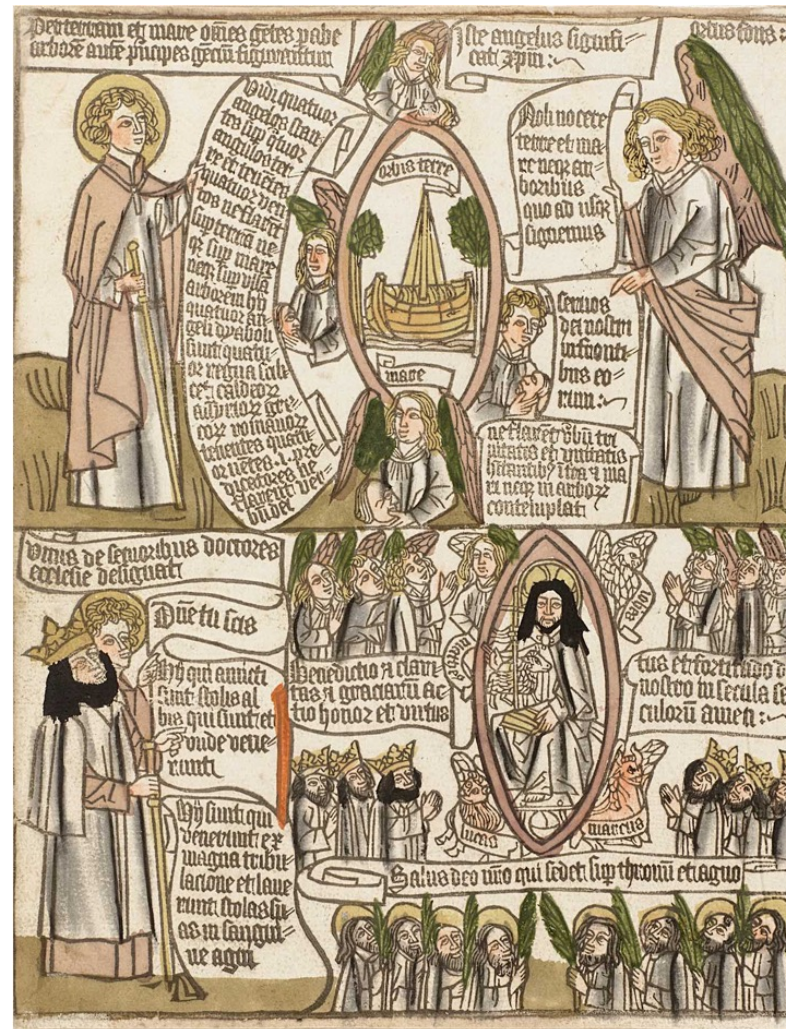 Per terram et mare om̄es gētes p abe
arborē autē pncipes gēciū figurantur
Iste angelus signifi-
cat xpm :~
ortus solis :
Vidi quatuor
angelos stan-
tes sup q̄tuor
angulos ter-
re et tenētes
quatuor ven-
tos ne flarēt
sup terrā ne
q sup mare
neq sup vllā
arborem hij
quatuor an-
geli dyaboli
sunt quatu-
or regna scili-
cet caldeoꝝ
assyrioꝝ gre-
coꝝ romanoꝝ
tenentes quatu-
or vētes .i. pre-
dicatores ne
flarent ver-
bū dei
orbis terre
mare
Noli nocere
terre et ma-
re neq ar-
boribus
quo ad usq
signemus
seruos
dei nostri
in fronti-
bus eo-
rum :~
ne flarēt v̄bū tri
nitatis et vnitatis
hītantibꝫ ī t̄ra ⁊ ma
ri neq in arboꝝ
contemplati
vnus de senioribus doctores
ecclesie designat
Dn̄e tu scis
Hij qui amicti
sunt stolis al
bis qui sunt et
vnde vene-
runt
Hij sunt qui
venerunt ex
magna tribu-
lacione et laue
runt stolas su-
as in sangui-
ne agni
Benedictio ⁊ clari
tas ⁊ graciarū ac
tio honor et virtus
tus et fortitudo d
nostro in secula se
culorū amen :~
lucas
marcus
Salus deo nr̄o qui sedet sup thronū et agno